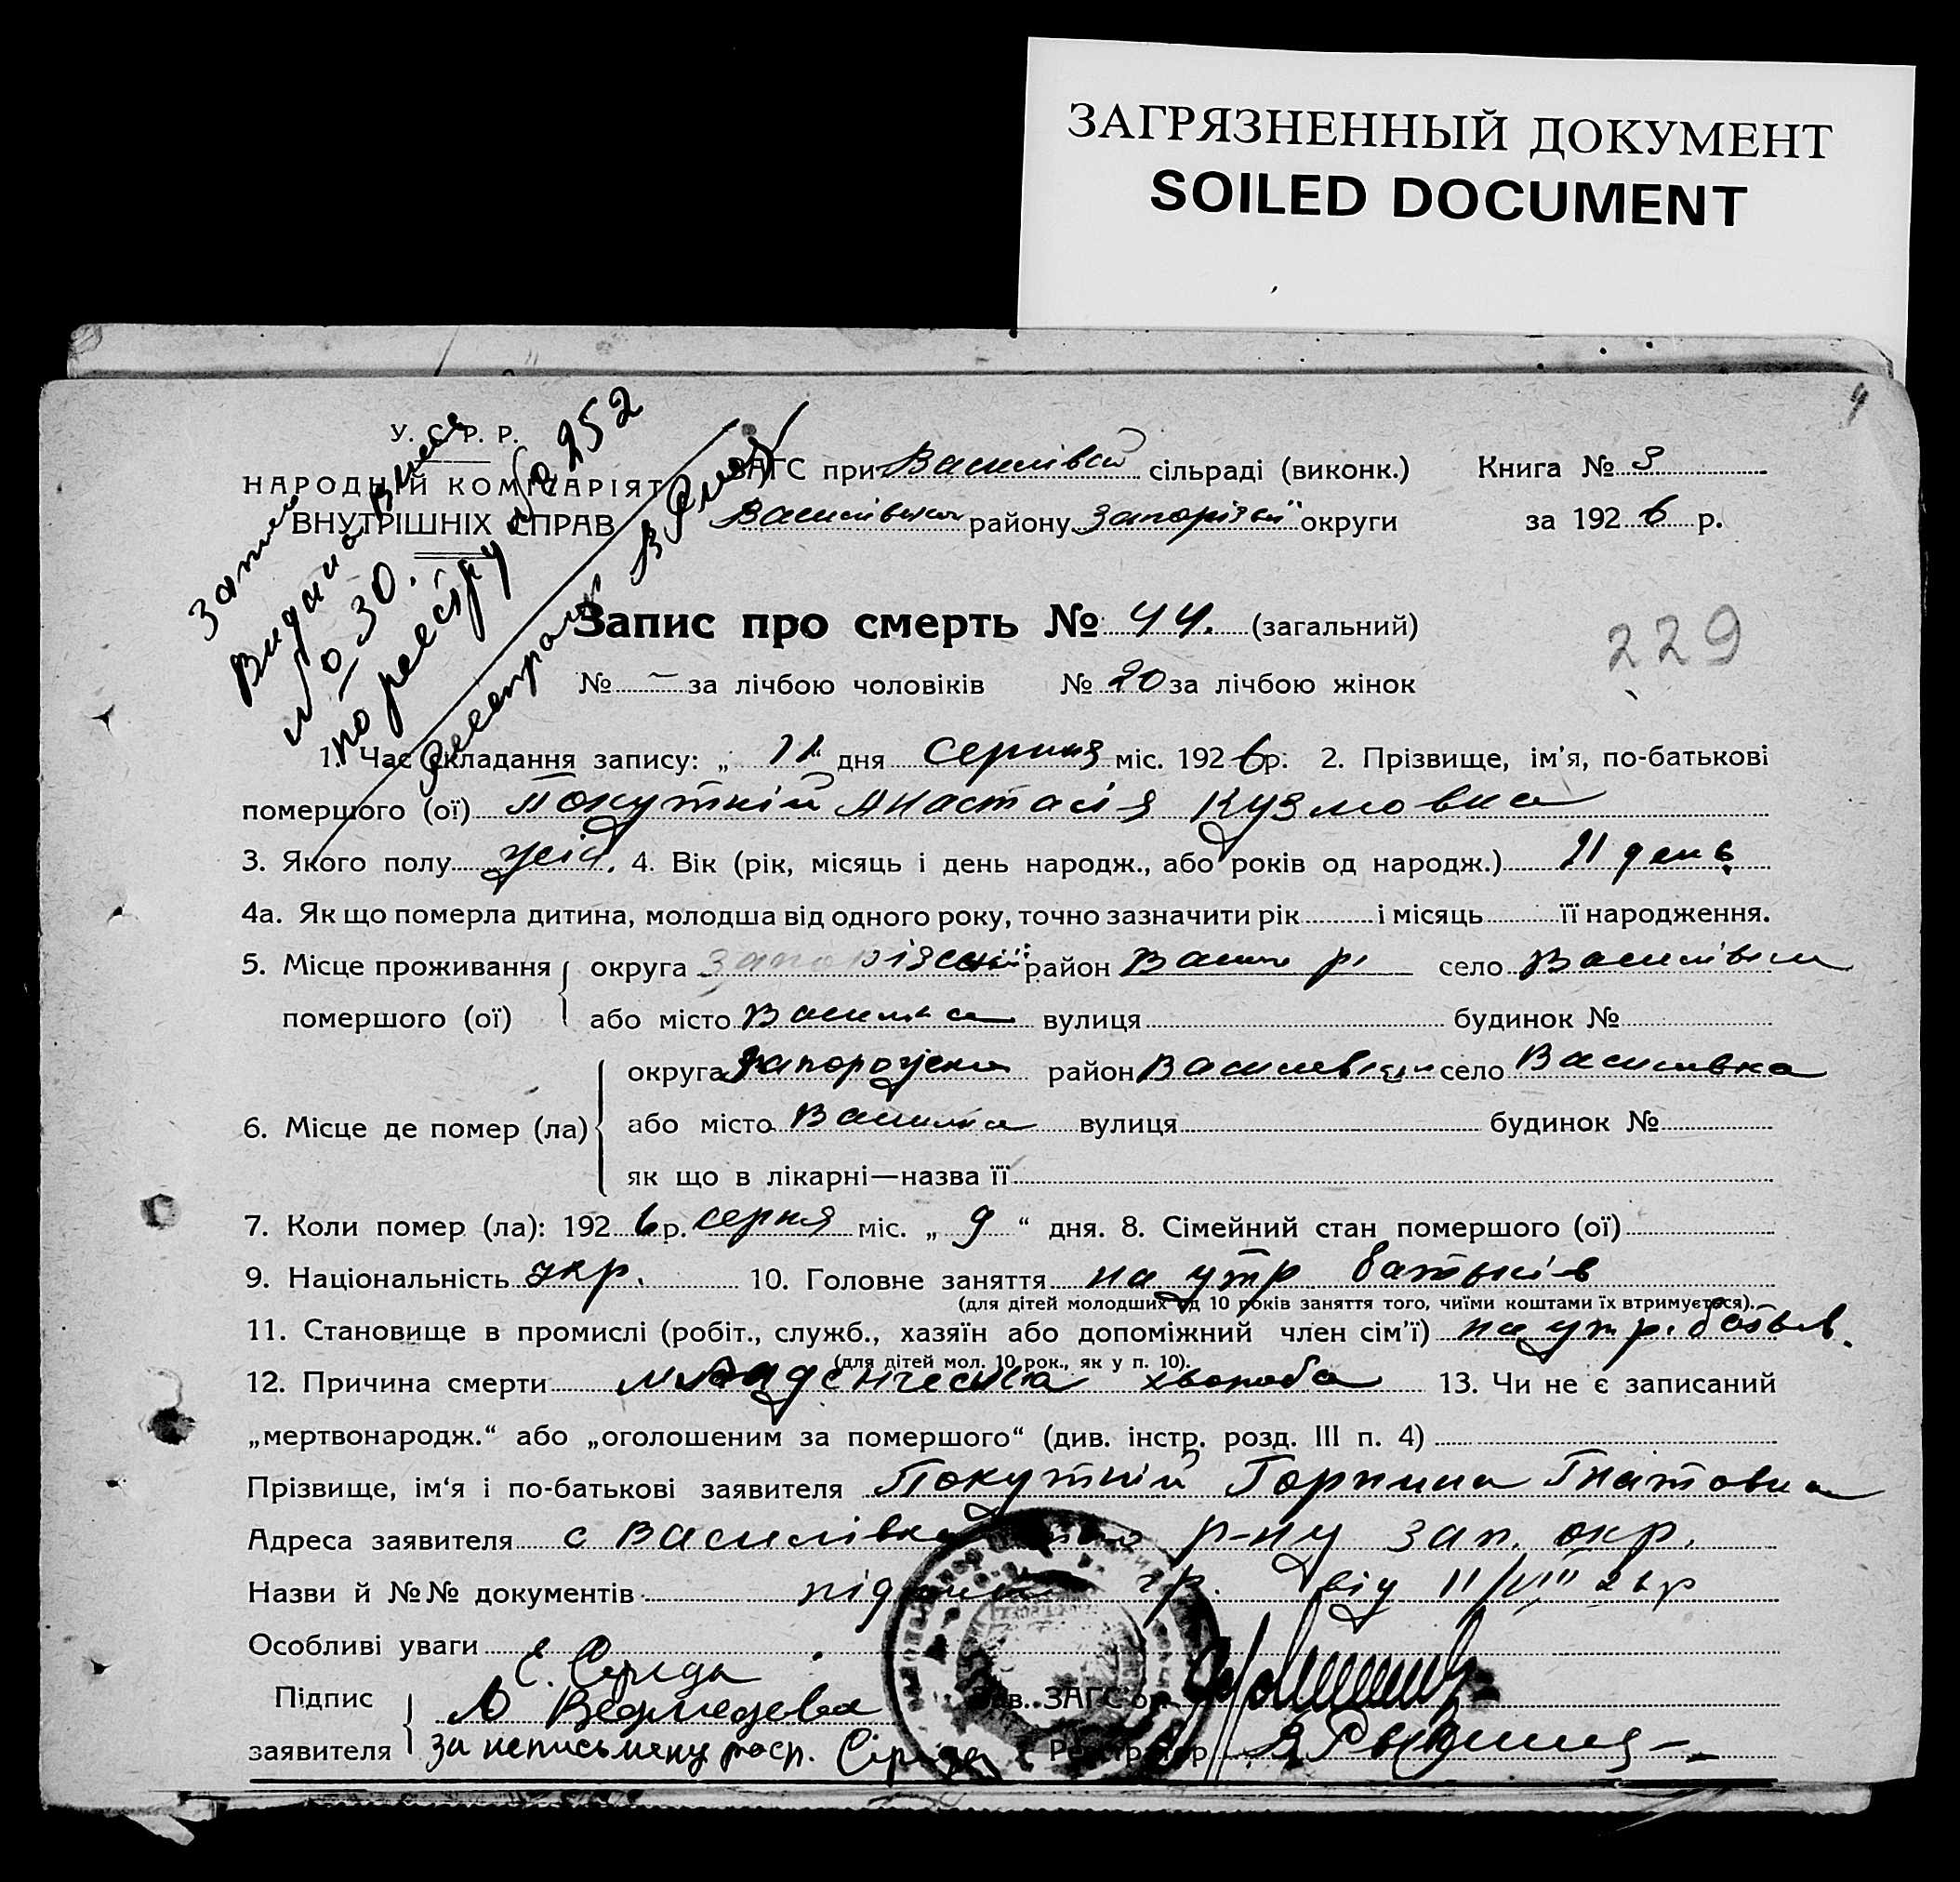 ЗАГРЯЗНЕННЫЙ ДОКУМЕНТ
SOILED DOCUMENT
У. С. Р. Р.
НАРОДНІЙ КОМІСАРІЯТ
ВНУТРІШНІХ СПРАВ
Видана
№ 30.
по реєстру № 252
ЗАГС при Василівськ сільраді (виконк.) Книга № 3
Василівськ району Запорізьк округи за 1926 р.
Запис про смерть № 44. (загальний)
229
№ — за лічбою чоловіків № 20 за лічбою жінок
1. Час складання запису: „ 11 “ дня Серпня міс. 1926 р. 2. Прізвище, ім’я, по-батькові
помершого (ої) Покутній Анастасія Кузмовна
3. Якого полу 4. Вік (рік, місяць і день народж., або років од народж.) 21 день
4а. Як що померла дитина, молодша від одного року, точно зазначити рік і місяць її народження.
5. Місце проживання округа район село Василівка
помершого (ої) або місто вулиця будинок №
округа район село Василівка
6. Місце де помер (ла) або місто вулиця будинок №
як що в лікарні—назва її
7. Коли помер (ла): 1926 р. серпня міс. „ 9 “ дня. 8. Сімейний стан помершого (ої)
9. Національність укр. 10. Головне заняття на утр батьків
(для дітей молодших од 10 років заняття того, чиїми коштами їх втримується).
11. Становище в промислі (робіт., служб., хазяїн або допоміжний член сім’ї) на утр. батьків.
(для дітей мол. 10 рок., як у п. 10).
12. Причина смерти младенческа хвороба 13. Чи не є записаний
„мертвонародж.“ або „оголошеним за помершого“ (див. інстр. розд. III п. 4)
Прізвище, ім‘я і по-батькові заявителя Покутній Горпина Гнатовна
Адреса заявителя с Василівка р-ну Зап. окр.
Назви й №№ документів від 11/VIII 26 р
Особливі уваги
Підпис
Зав. ЗАГС'ом
заявителя за неписьмену росп. Середа Реєстратор